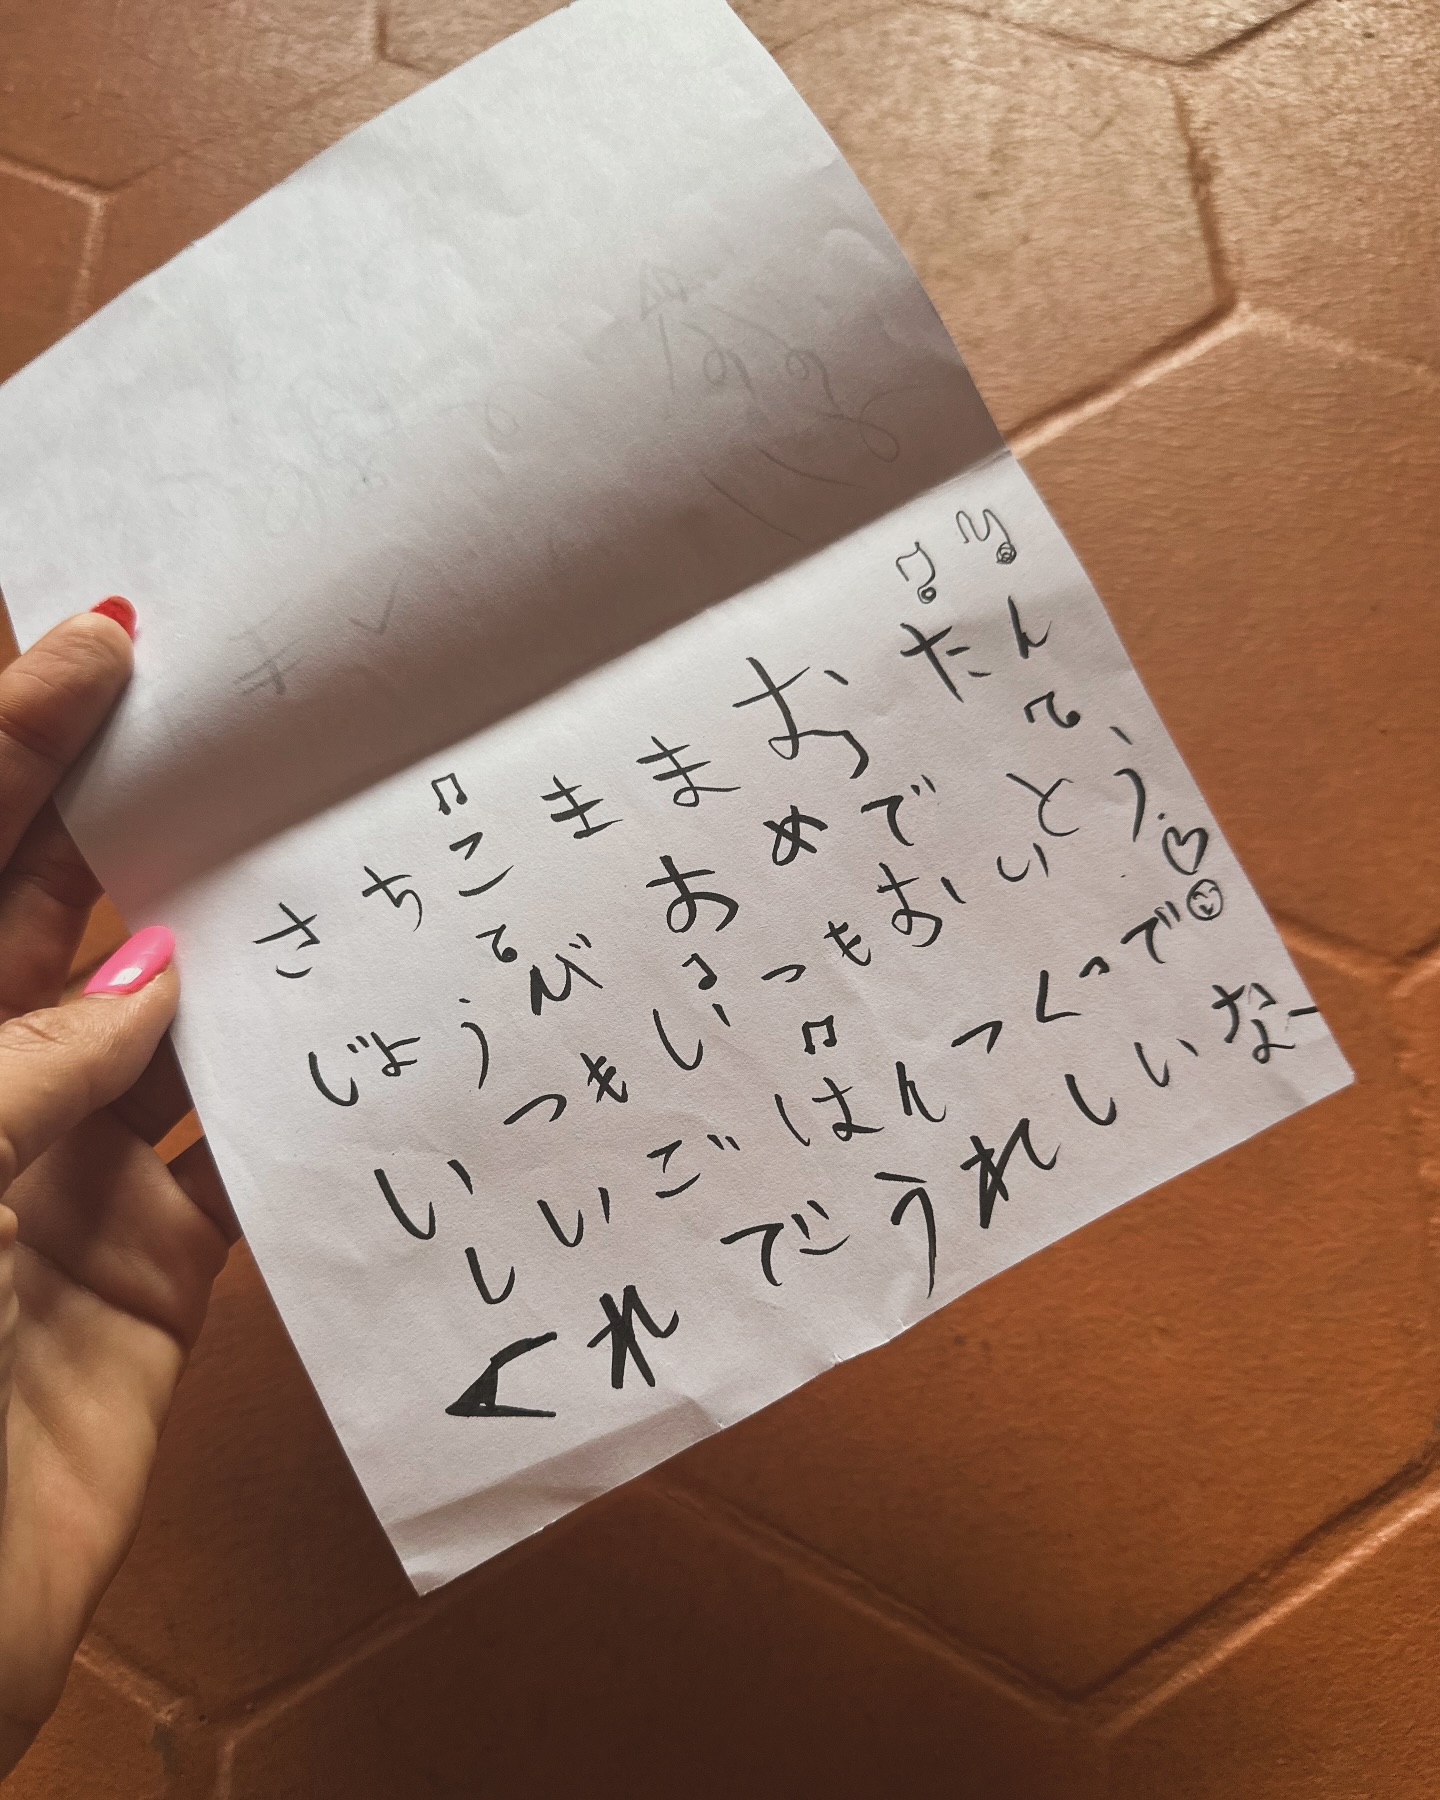 さちこままおたん
じょうびおめでとう
いつもいつもおい
しいごはんつくっで
くれでうれしいなー